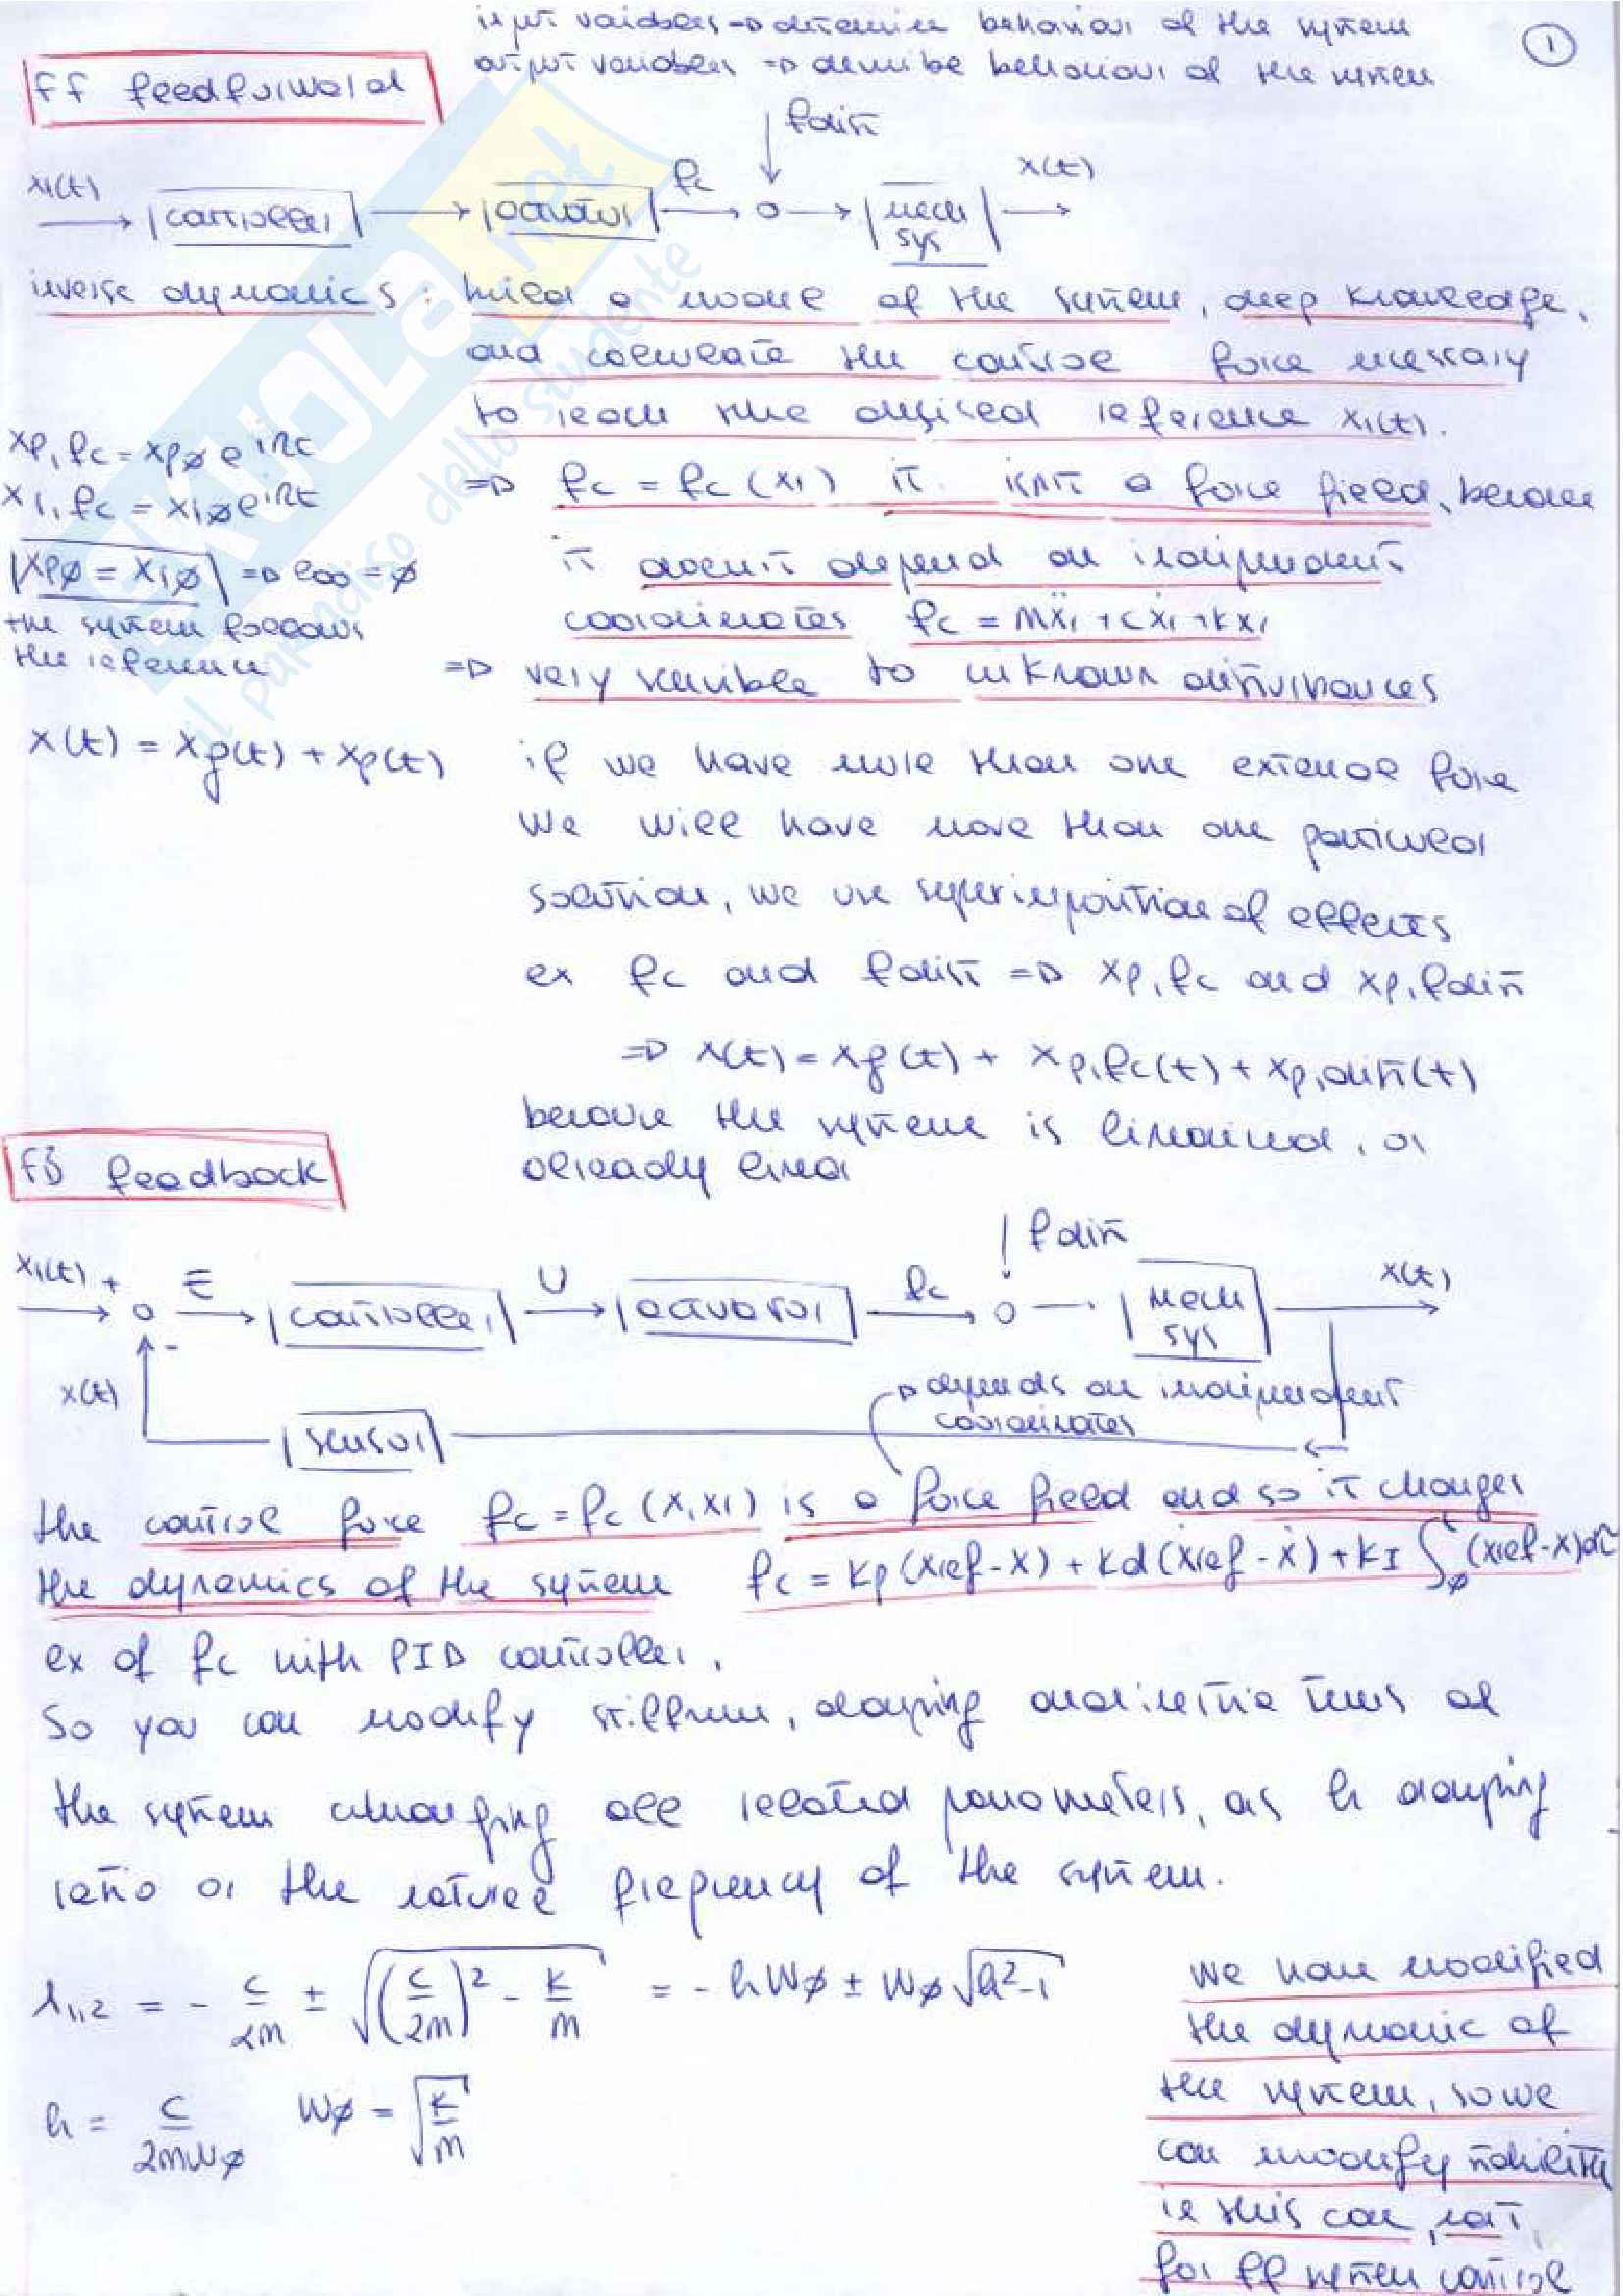 input variables => determine behaviour of the system
output variables => describe behaviour of the system
1
FF feedforward
fdist
xr(t)
controller
actuator
fc
mech sys
x(t)
inverse dynamics : build a model of the system, deep knowledge,
and calculate the control force necessary
to reach the desired reference xr(t).
xp,fc = xpø e^iΩt
xr,fc = xrø e^iΩt
xpø = xrø => e∞ = ø
the system follows
the reference
=> fc = fc (xr) it isn't a force field, because
it doesn't depend on independent
coordinates fc = mẍr + cẋr + kxr
=> very sensible to unknown disturbances
x(t) = xg(t) + xp(t)
if we have more than one external force
we will have more than one particular
solution, we use superimposition of effects
ex fc and fdist => xp,fc and xp,fdist
=> x(t) = xg(t) + xp,fc(t) + xp,dist(t)
because the system is linearized, or
already linear
FB feedback
fdist
xr(t) +
E
controller
U
actuator
fc
mech sys
x(t)
-
x(t)
sensor
depends on independent
coordinates
the control force fc = fc (x, xr) is a force field and so it changes
the dynamics of the system fc = kp (xref - x) + kd (ẋref - ẋ) + kI ∫ø^t (xref - x) dτ
ex of fc with PID controller.
So you can modify stiffness, damping and inertia terms of
the system changing all related parameters, as h damping
ratio or the natural frequency of the system.
λ1,2 = - c/2m ± √((c/2m)² - k/m) = - hωø ± ωø √(h²-1)
h = c/2mωø ωø = √(k/m)
we have modified
the dynamic of
the system, so we
can modify stability
in this case, not
for ff system control